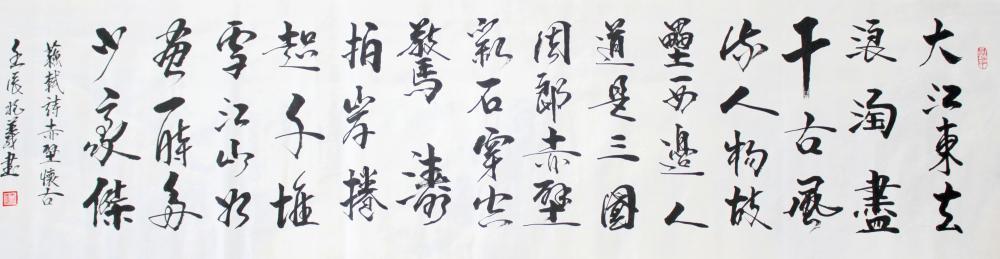 大江東去
浪淘盡
千古風
流人物故
壘西邊人
道是三國
周郎赤壁
亂石穿空
驚濤
拍岸捲
起千堆
雪江山如
畫一時多
少豪傑
蘇軾詩赤壁懷古
壬辰書